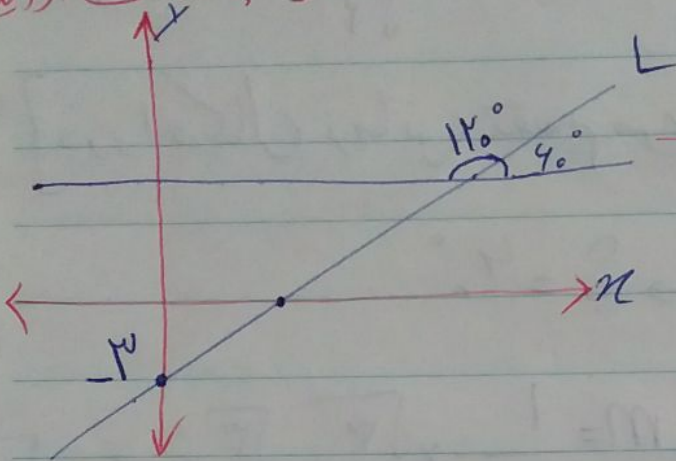 y
L
۱۲۰° ۶۰°
x
-۳